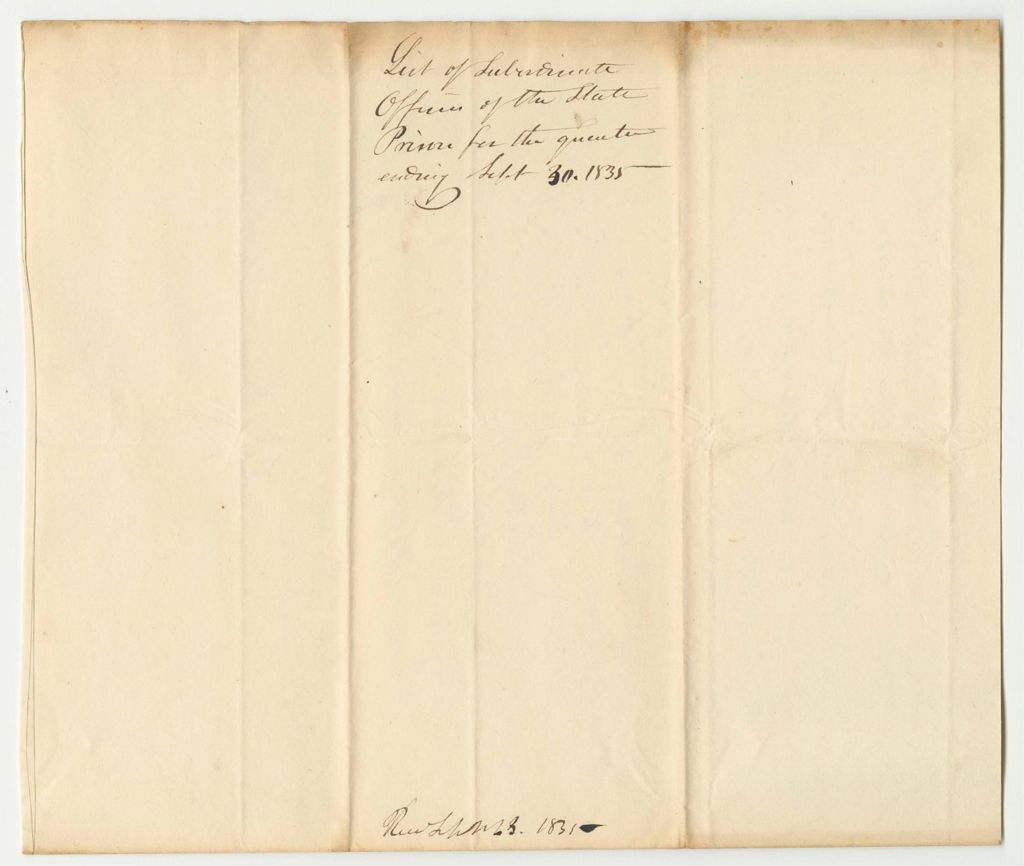 List of Subordinate
Officers of the State
Prison for the quarter
ending Sept 30. 1835
23. 1835